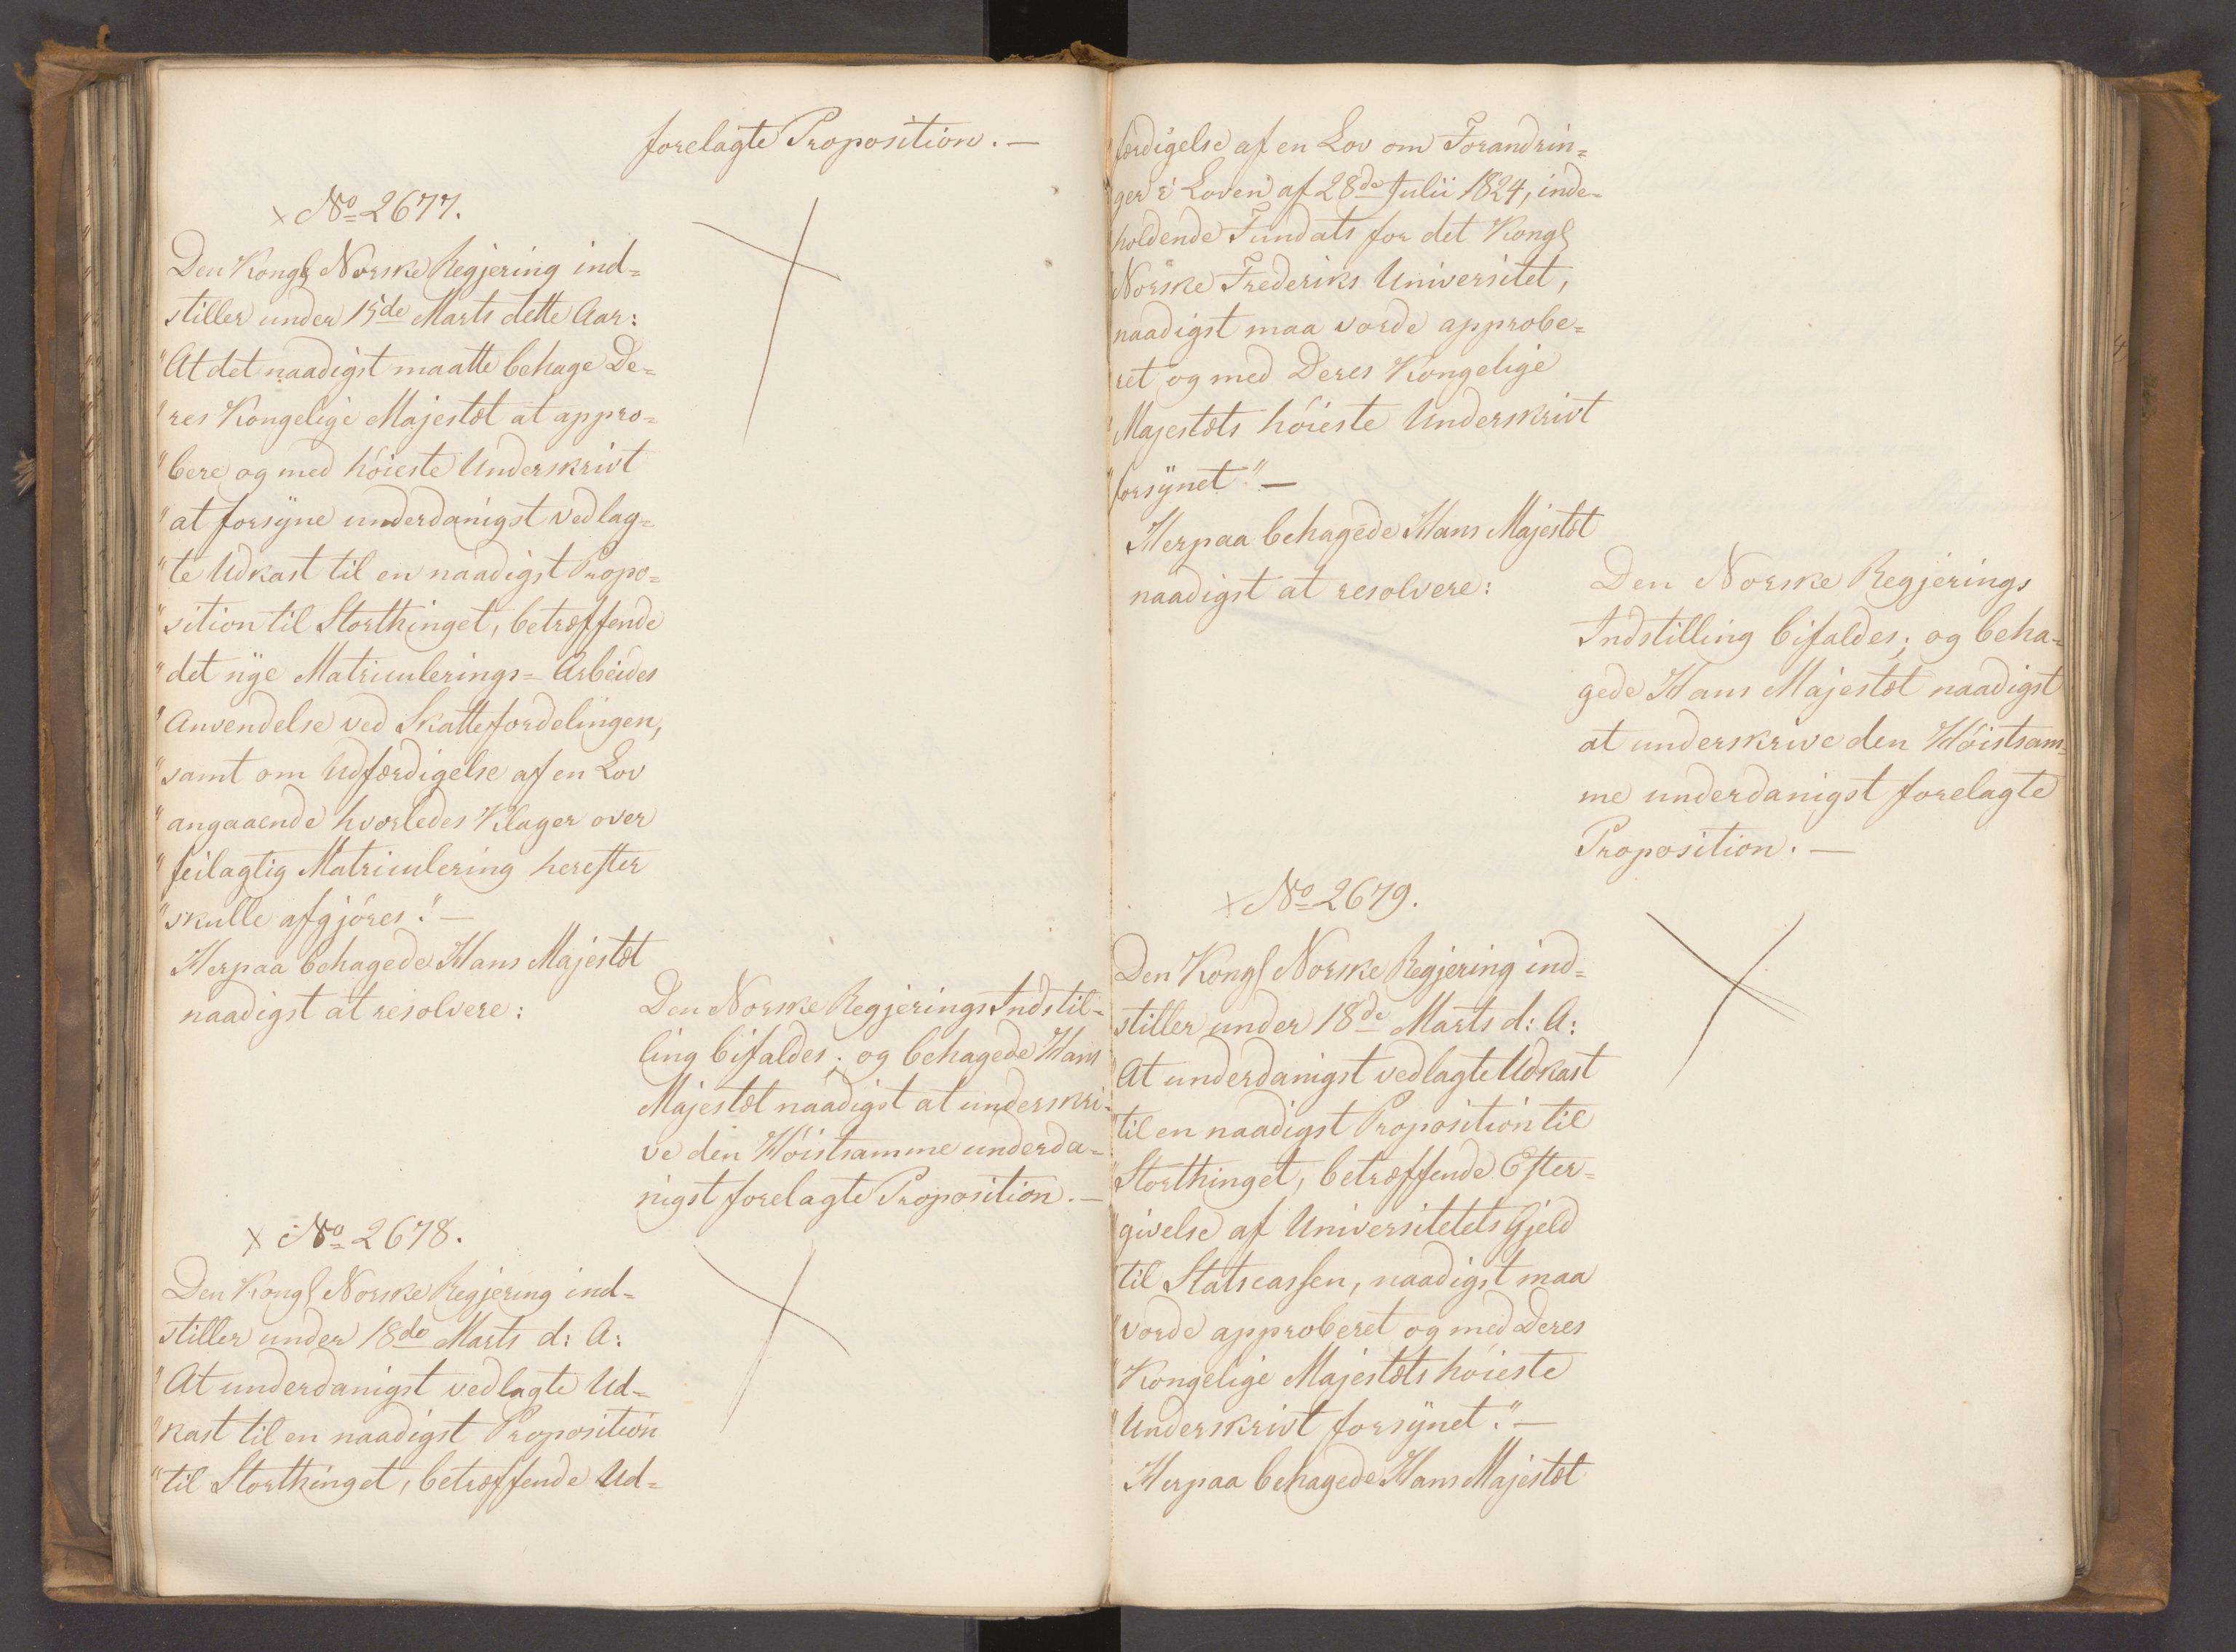 forelagte Proposition. —
× No 2677.
Den Kongl Norske Regjering ind=
stiller under 15de Marts dette Aar:
"At det naadigst maatte behage De=
"res Kongelige Majestæt at appro=
"bere og med höieste Underskrivt
"at forsÿne underdanigst vedlag=
"te Udkast til en naadigst Propo=
"sition til Storthinget, betræffende
"det nÿe Matriculerings=Arbeides
"Anvendelse ved Skattefordelingen,
"samt om Udfærdigelse af en Lov
"angaaende hvorledes Klager over
"feilagtig Matriculering herefter
"skulle afgjöres." —
Herpaa behagede Hans Majestæt
naadigst at resolvere:
Den Norske Regjerings Indstil=
ling bifaldes; og behagede Hans
Majestæt naadigst at underskri=
ve den Höistsamme underda=
nigst forelagte Proposition. —
× No 2678.
Den Kongl Norske Regjering ind=
stiller under 18de Marts d: A:
"At underdanigst vedlagte Ud=
"kast til en naadigst Proposition
"til Storthinget, betræffende Ud=
"færdigelse af en Lov om Forandrin=
"ger i Loven af 28de Julii 1824, inde=
"holdende Fundats for det Kongl
"Norske Frederiks Universitet,
"naadigst maa vorde approbe=
"ret og med Deres Kongelige
"Majestæts höieste Underskrivt
"forsÿnet." —
Herpaa behagede Hans Majestæt
naadigst at resolvere:
Den Norske Regjerings
Indstilling bifaldes; og beha=
gede Hans Majestæt naadigst
at underskrive den Höistsam=
me underdanigst forelagte
Proposition. —
× No 2679.
Den Kongl Norske Regjering ind=
stiller under 18de Marts d: A:
"At underdanigst vedlagte Udkast
"til en naadigst Proposition til
"Storthinget, betræffende Efter=
"givelse af Universitetets Gjeld
"til Statscassen, naadigst maa
"vorde approberet og med Deres
"Kongelige Majestæts höieste
"Underskrivt forsÿnet." —
Herpaa behagede Hans Majestæt